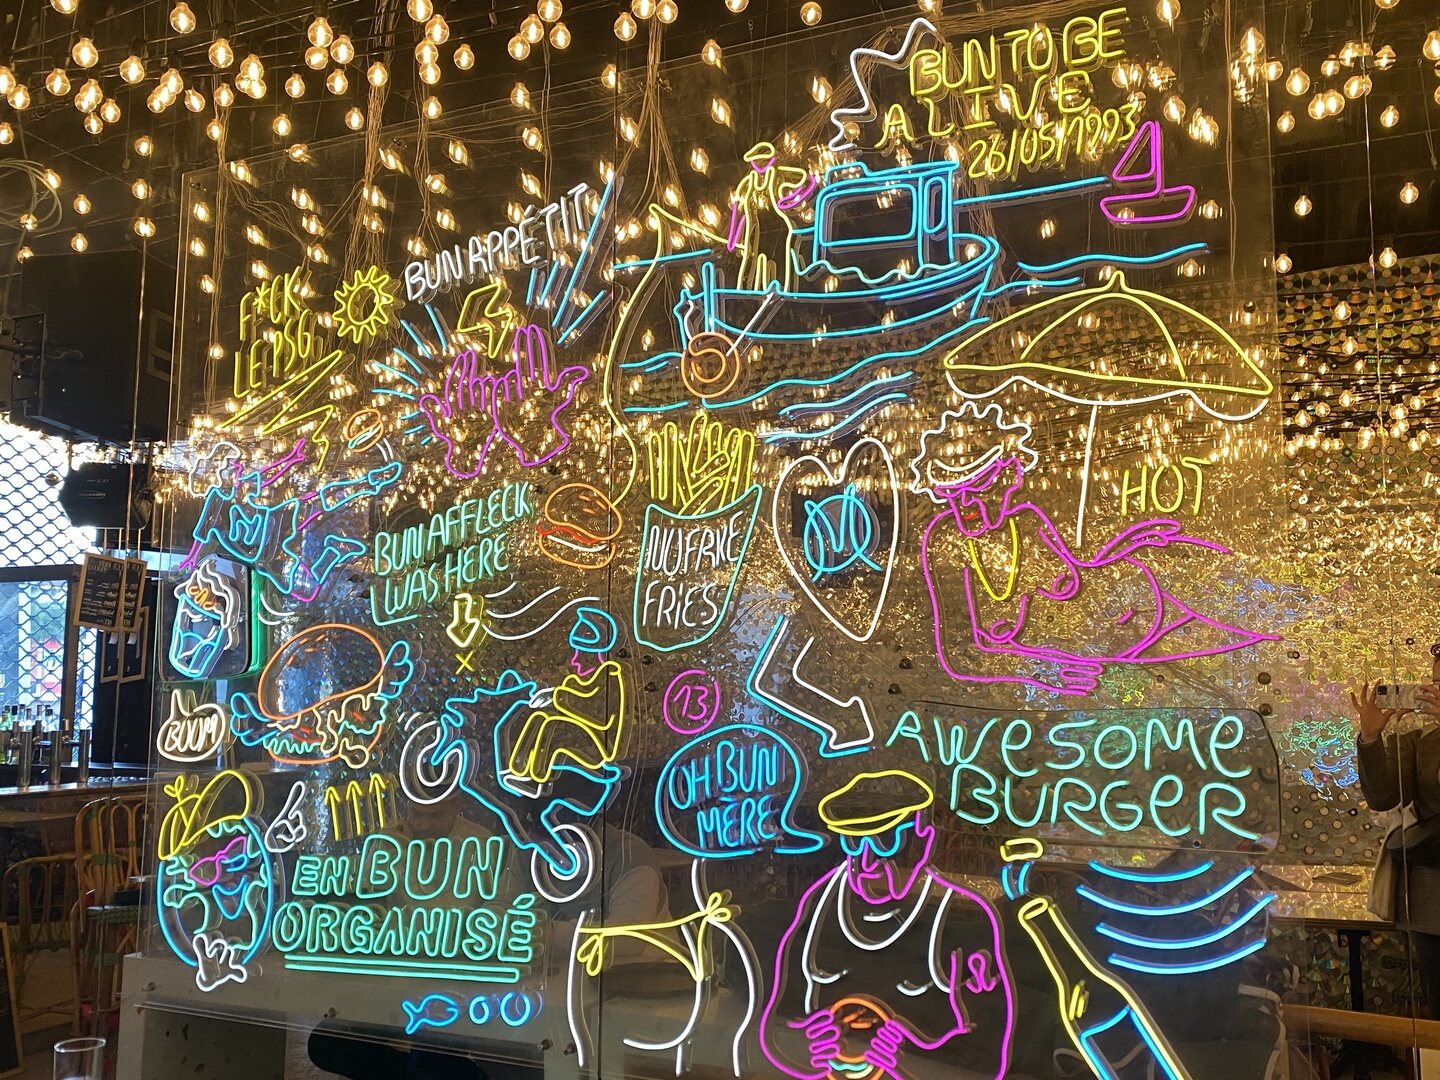 BUN TO BE
ALIVE
26/05/1993
BUN APPÉTIT
F*CK
LE PSG
HOT
BUN AFFLECK
WAS HERE
NO FAKE
FRIES
M
13
BOOM
AWESOME
BURGER
OH BUN
MÈRE
EN BUN
ORGANISÉ